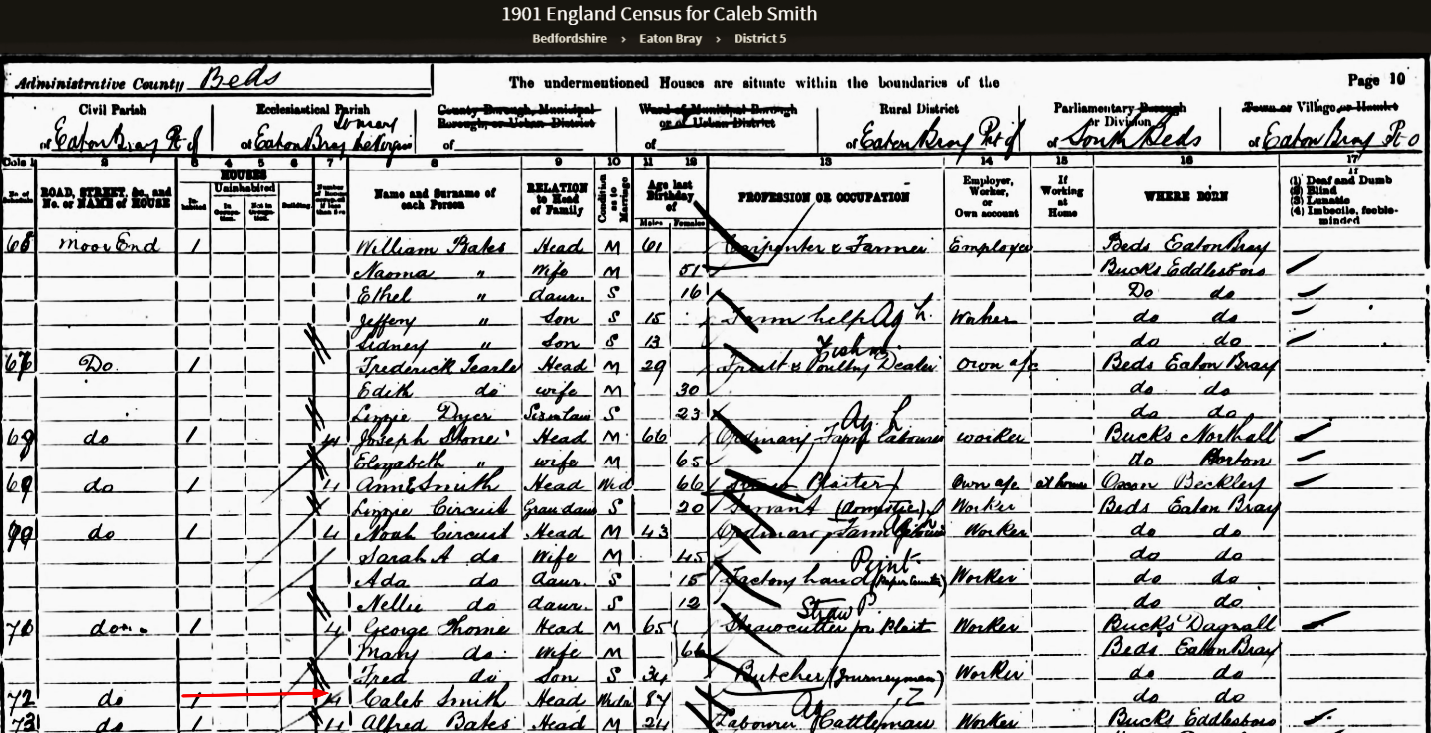 1901 England Census for Caleb Smith
Bedfordshire > Eaton Bray > District 5
Administrative County Beds
The undermentioned Houses are situate within the boundaries of the
Page 10
Civil Parish
of Eaton Bray Pt of
Ecclesiastical Parish
of Eaton Bray
County Borough, Municipal Borough, or Urban District
of
Ward of Municipal Borough or of Urban District
of
Rural District
of Eaton Bray Pt of
Parliamentary Borough or Division
of South Beds
Town or Village or Hamlet
of Eaton Bray Pt o
Cols 1 2 3 4 5 6 7 8 9 10 11 12 13 14 15 16 17
ROAD, STREET, &c., and No. or NAME of HOUSE
HOUSES
Inhabited
Uninhabited
In Occupation.
Not in Occupation.
Building.
Name and Surname of each Person
RELATION to Head of Family
Condition as to Marriage
Age last Birthday of
Males Females
PROFESSION OR OCCUPATION
Employer, Worker, or Own account
If Working at Home
WHERE BORN
If (1) Deaf and Dumb (2) Blind (3) Lunatic (4) Imbecile, feeble-minded
Moor End 1 William Bates Head M 61 Carpenter & Farmer Employer Beds Eaton Bray
Naoma " Wife M 51 Bucks Eddlesboro
Ethel " daur. S 16 Do do
Jeffery " Son S 15 Farm help Ag L. Worker do do
Sidney " Son S 13 do do
Do 1 Frederick Tearle Head M 29 Fruit & Poultry Dealer Fishm. Own a/c Beds Eaton Bray
Edith do wife M 30 do do
Lizzie Dyer S 23 do do
do 1 4 Joseph Stone Head M 66 Ordinary Farm labourer Ag L worker Bucks Northall
Elizabeth " wife M 65 do Horton
69 do 1 4 Ann E Smith Head Wid 66 Straw Plaiter Own a/c at home Oxon Beckley
Lizzie Circuit Grandaur S 20 Servant (Domestic) Worker Beds Eaton Bray
do 1 4 Noah Circuit Head M 43 Ordinary Farm Worker do do
Sarah A do Wife M 45 do do
Ada do daur. S 15 Factory hand Print. Worker do do
Nellie do daur. S 12 do do
do 1 4 George Thorne Head M 65 Straw cutter for Plait Straw P Worker Bucks Dagnall
Mary do Wife M 66 Beds Eaton Bray
Fred do Son S 34 Butcher (Journeyman) Worker do do
72 do 1 4 Caleb Smith Head 84 do do
73 do 1 4 Alfred Bates Head M 24 Labourer Cattleman Ag Worker Bucks Eddlesboro